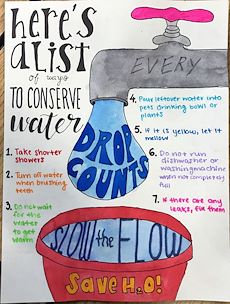 here's
A LIST
of ways
TO CONSERVE
water
EVERY
DROP
COUNTS
1. Take shorter
showers
2. Turn off water
when brushing
teeth
3. Do not wait
for the
water
to get
warm
4. Pour leftover water into
pets drinking bowl or
plants
5. If it is yellow, let it
mellow
6. Do not run
dishwasher or
washing machine
when not completely
full
7. If there are any
leaks, fix them
SLOW the FLOW
SAVE H2O!